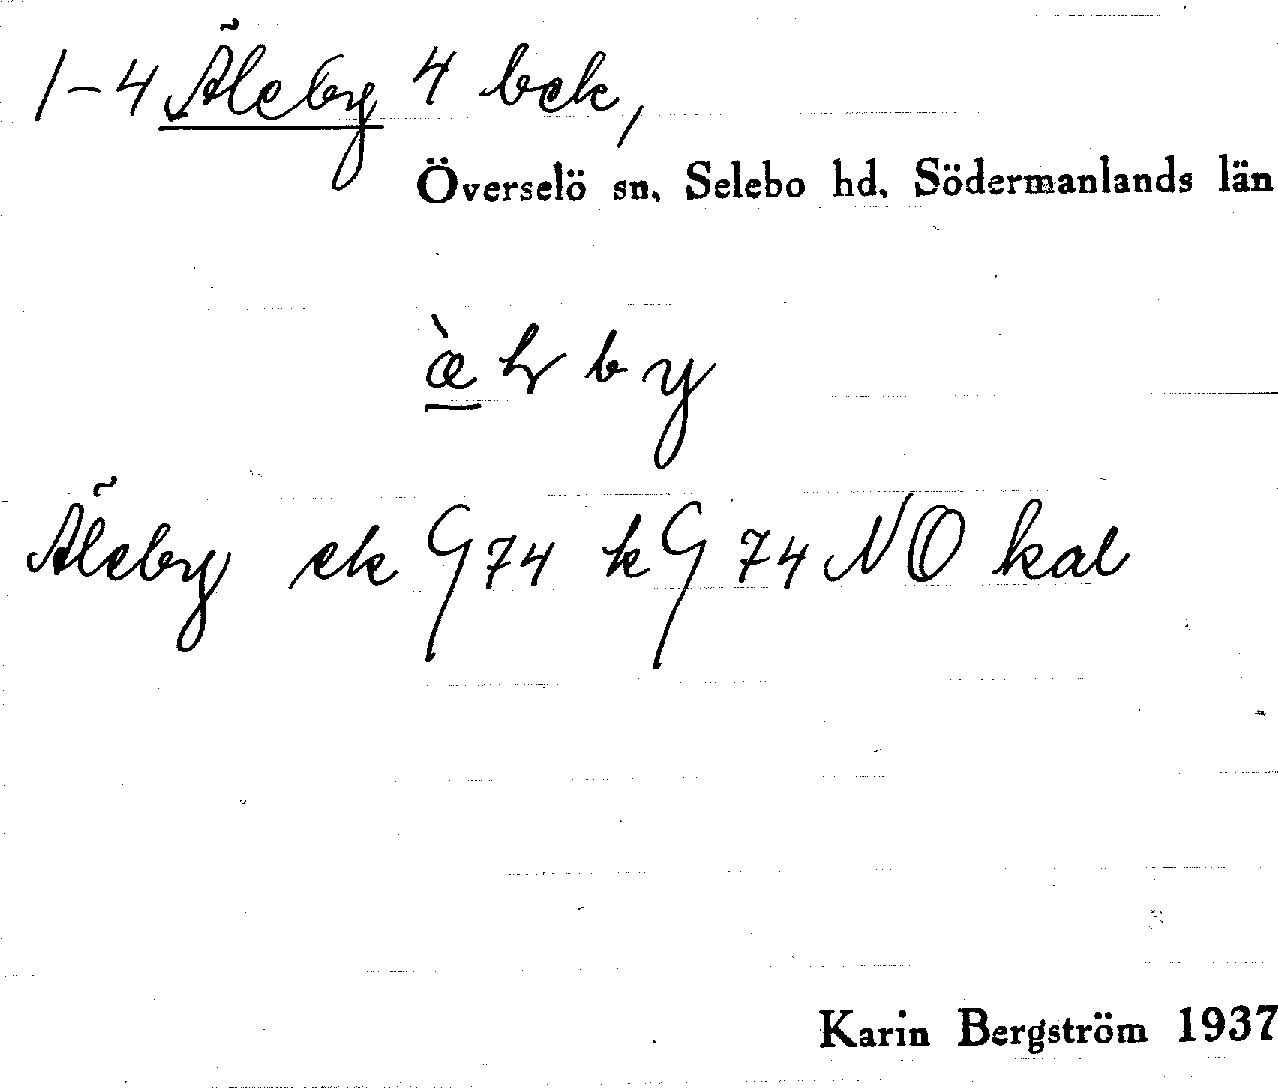 1-4 Äleby 4 bek,
Överselö sn, Selebo hd, Södermanlands län
Äleby ek G 74 k G 74 NO kal
Karin Bergström 1937